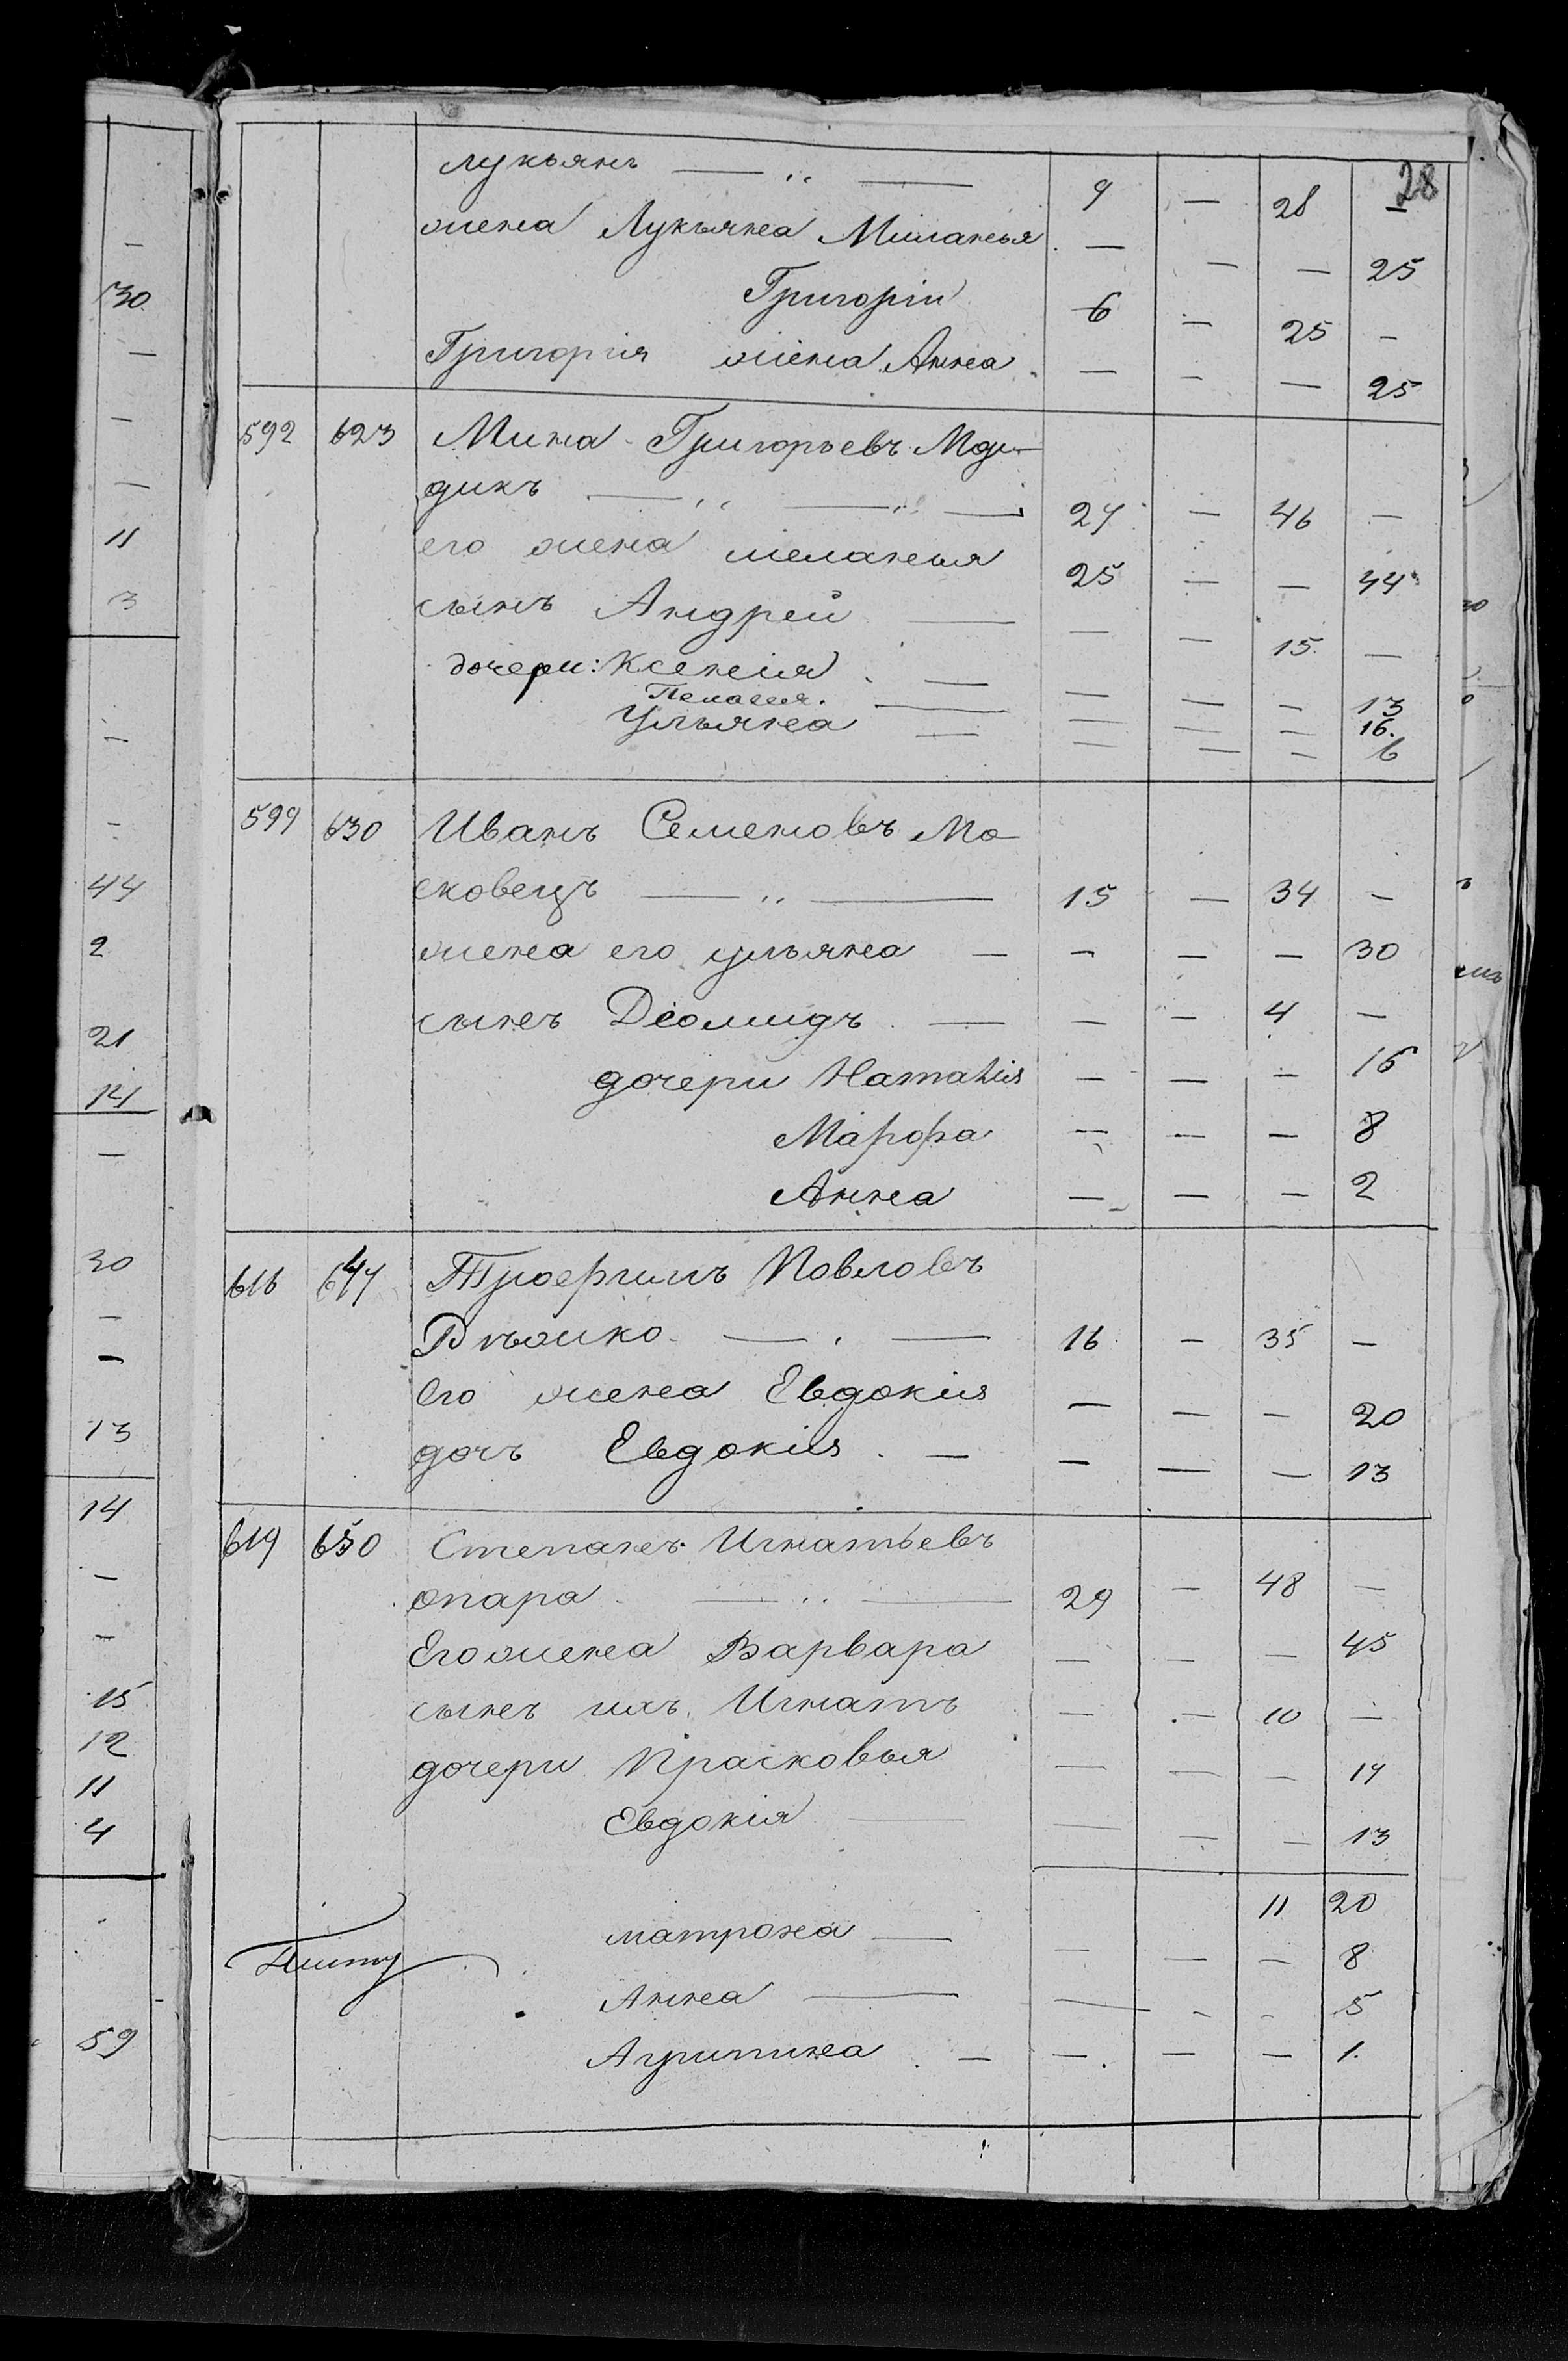 30
11
3
44
2
21
14
30
13
14
15
12
11
4
59
28
Лукьянъ — „ — 9 — 28 —
жена Лукьяна Миланья — — — 25
Григорій 6 — 25 —
Григорія жена Анна — — — 25
592 623 Мина Григорьевъ
дикъ — „ — „ — 27 — 46 —
его жена меланья 25 — — 44
сынъ Андрей — — — 15 —
дочери: Ксенія — — — — 13
Пелагея — — — — 16
Ульяна — — — — 6
599 630 Иванъ Семеновъ Мо-
сковецъ — „ — 15 — 34 —
жена его ульяна — — — — 30
сынъ Діомидъ — — — 4 —
дочери Наталія — — — 16
Марфа — — — 8
Анна — — — 2
616 647 Трофимъ Повловъ
16 — 35 —
Его жена Евдокія — — — 20
дочь Евдокія — — — — 13
619 650 Степанъ Игнатьевъ
опара — „ — 29 — 48 —
Его жена Варвара — — — 45
сынъ ихъ Игнатъ — — 10 —
дочери Прасковья — — — 17
Евдокія — — — — 13
11 20
матрона — — — — 8
Анна — — — — 5
Агрипина — — — — 1